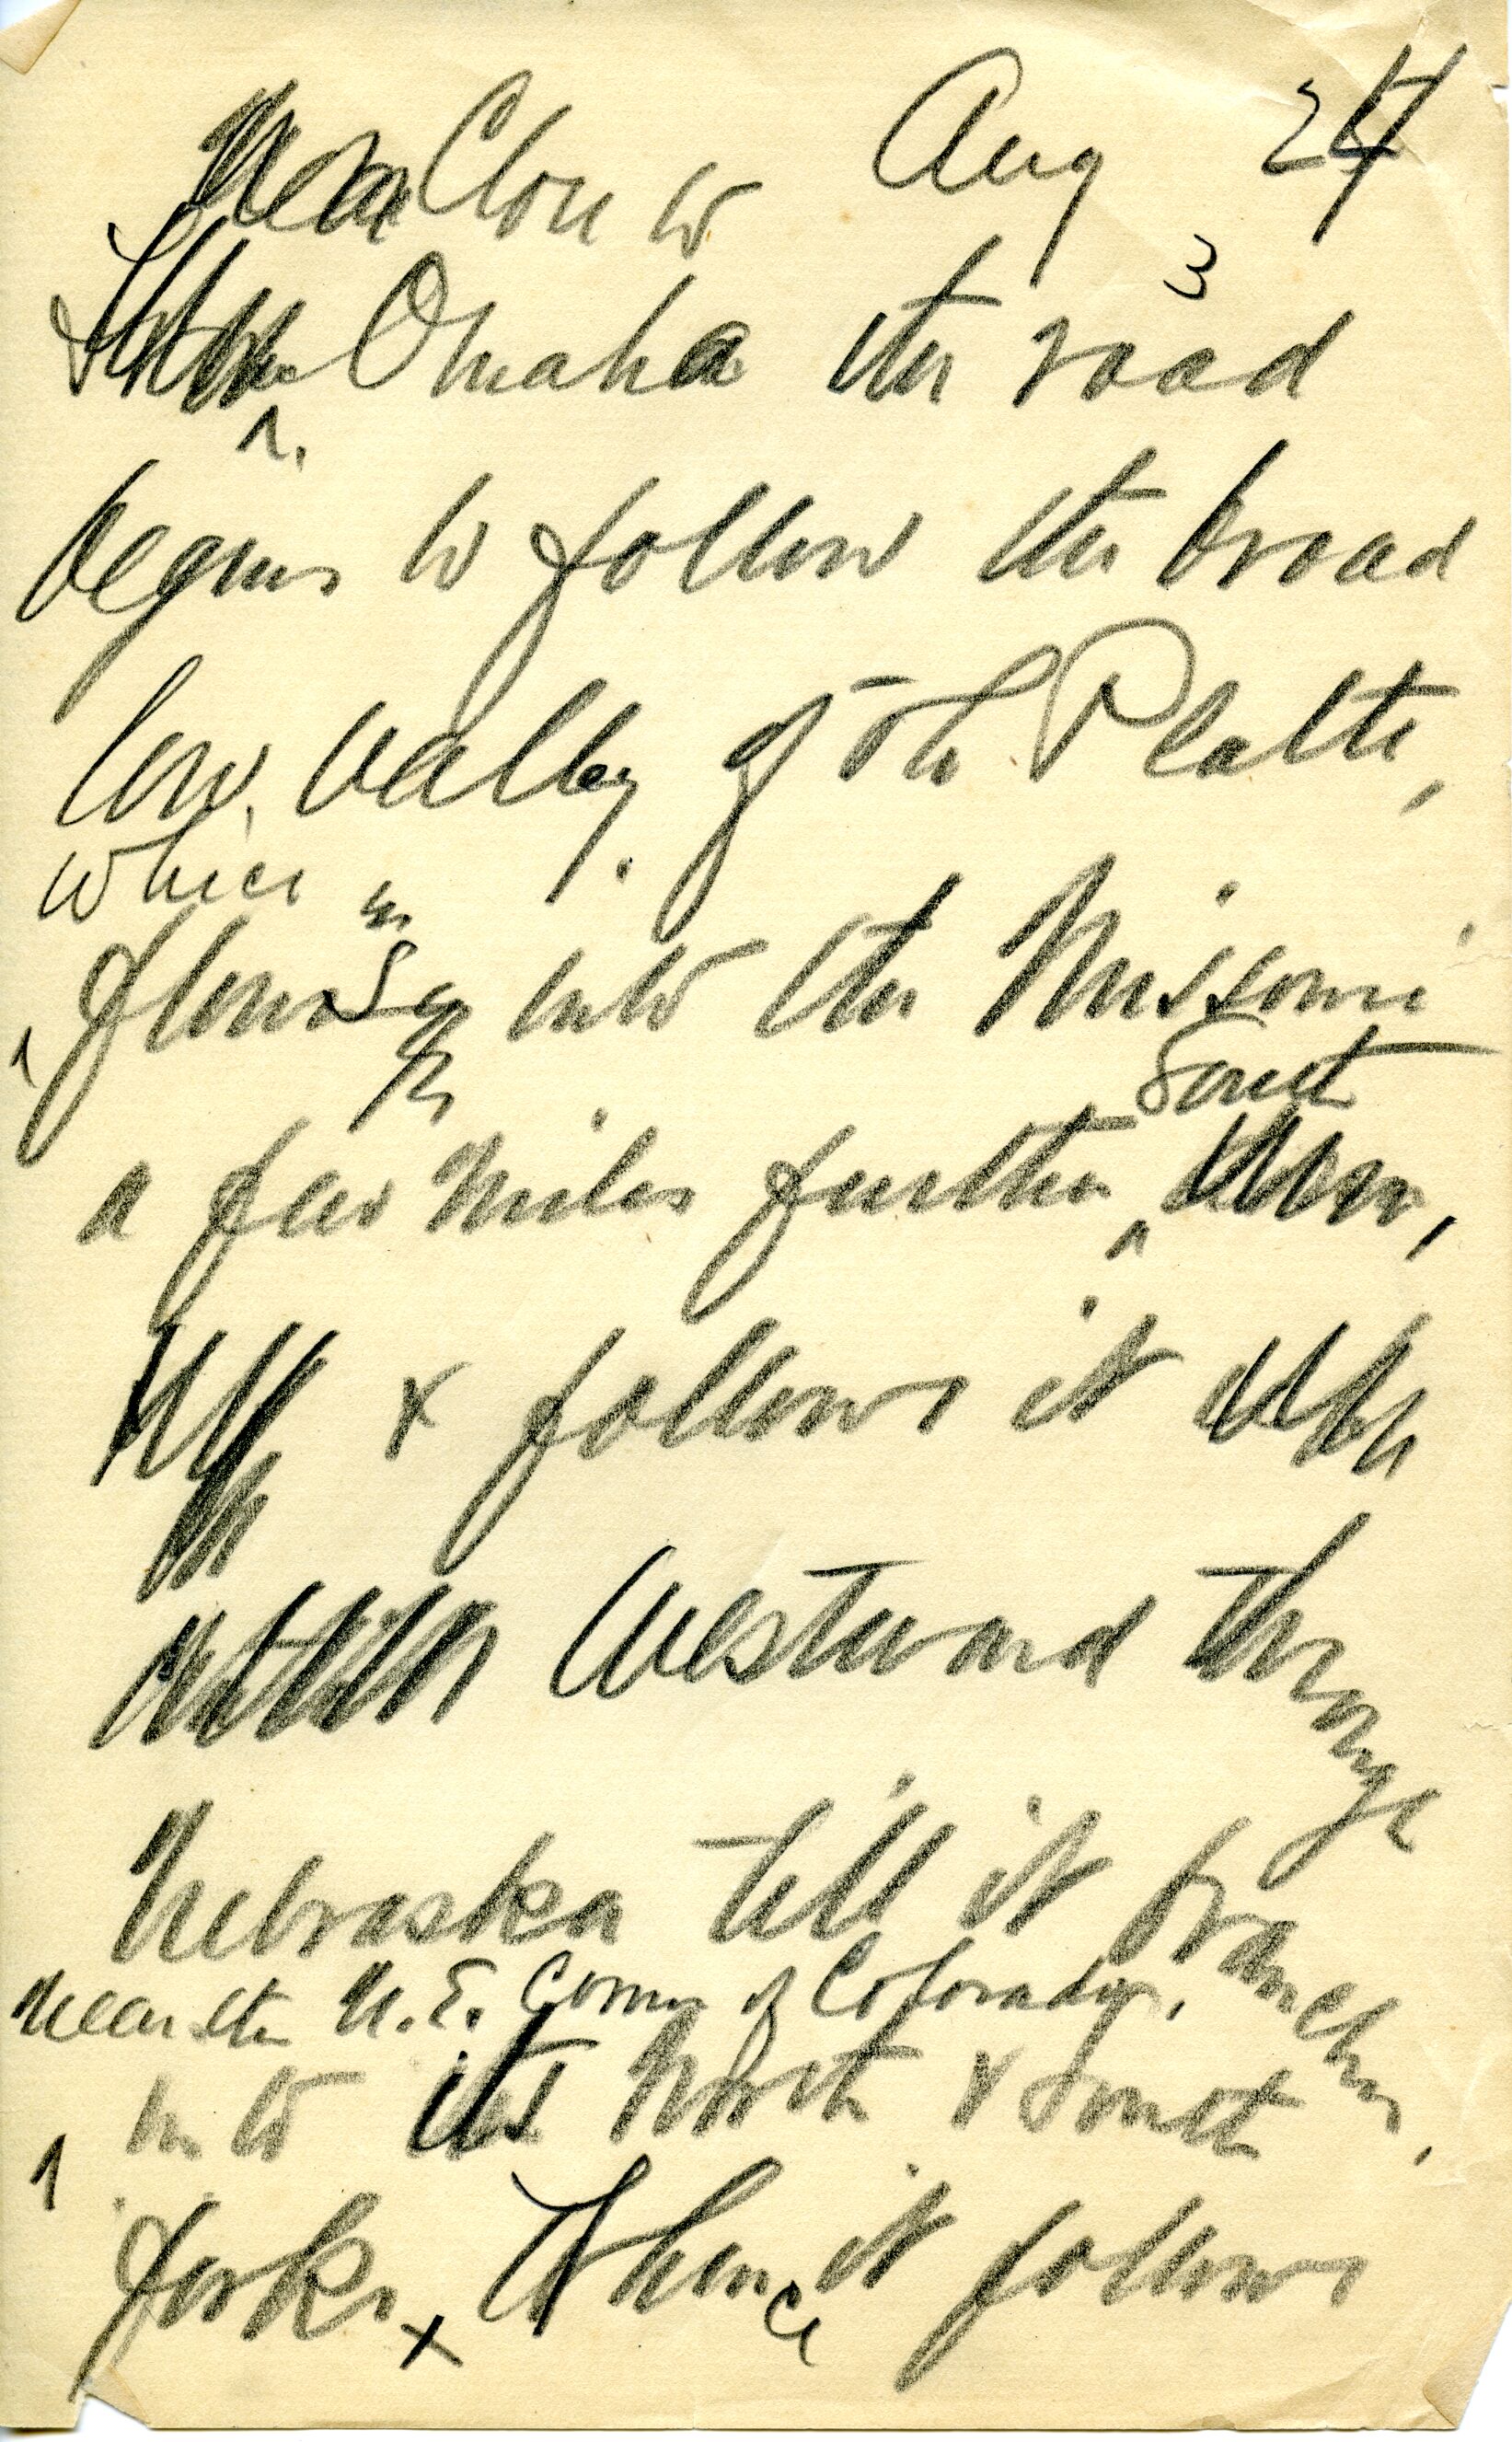 Close to Aug 24
3
Omaha the road
begins to follow the broad
low, valley of the Platte,
which
flows into the Missouri
South
a few miles further
& follows it
Westward through
Nebraska till it branches,
near the N.E. Corner of Colorado,
into its North & South
forks, Whence it follows